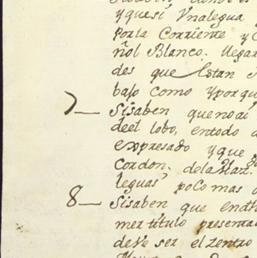 yquesi Vnalegua y
porla Corriente y C
ñol Blanco. llegar
des que Estan
bajo como y porqu
7— Sisaben quenoai
deel lobo, entodo
expresado yque
Cordon. dela Mar.
leguas poco mas o
8— Sisaben que enel
mertitulo presenta
deve ser el Zentro